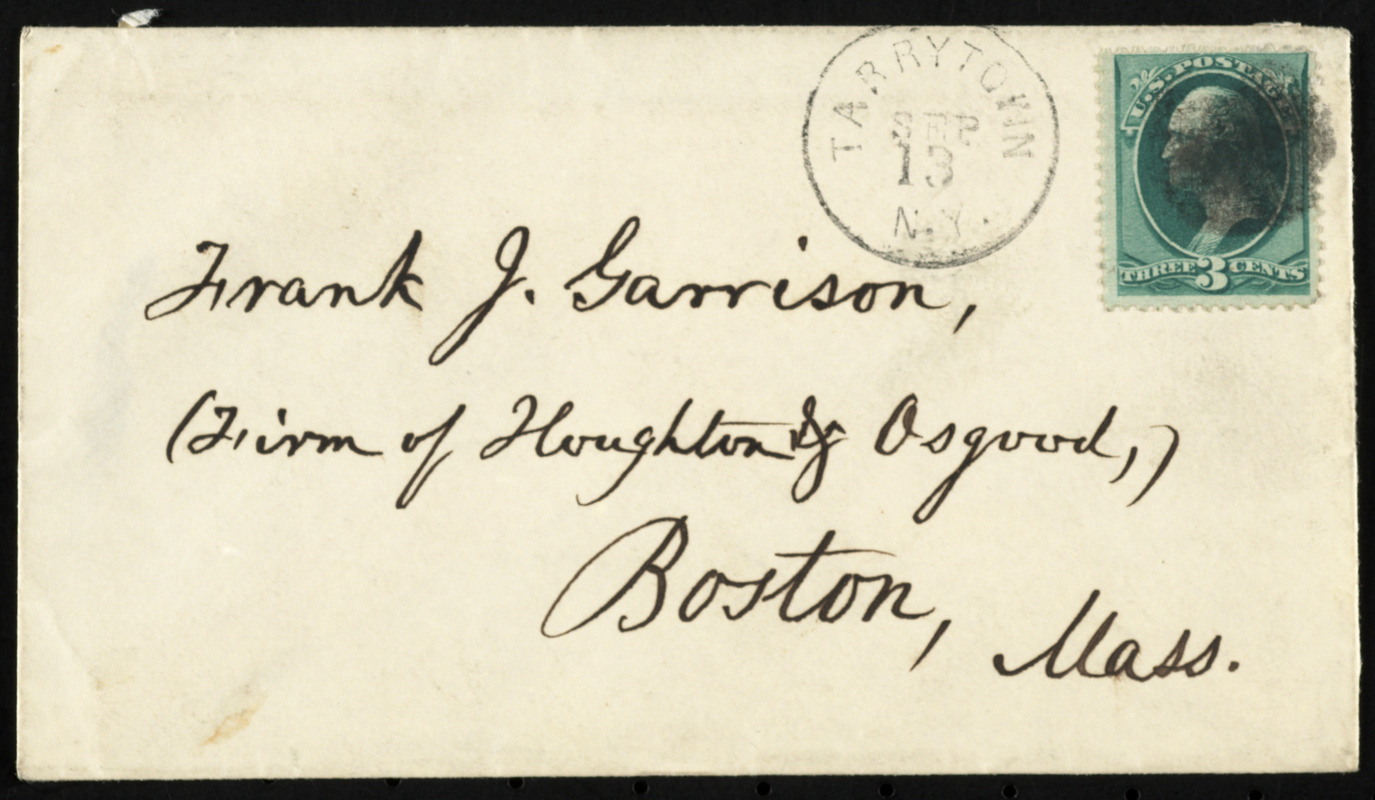 TARRYTOWN
SEP
13
N.Y.
U.S. POSTAGE
THREE 3 CENTS
Frank J. Garrison,
(Firm of Houghton & Osgood,)
Boston,
Mass.